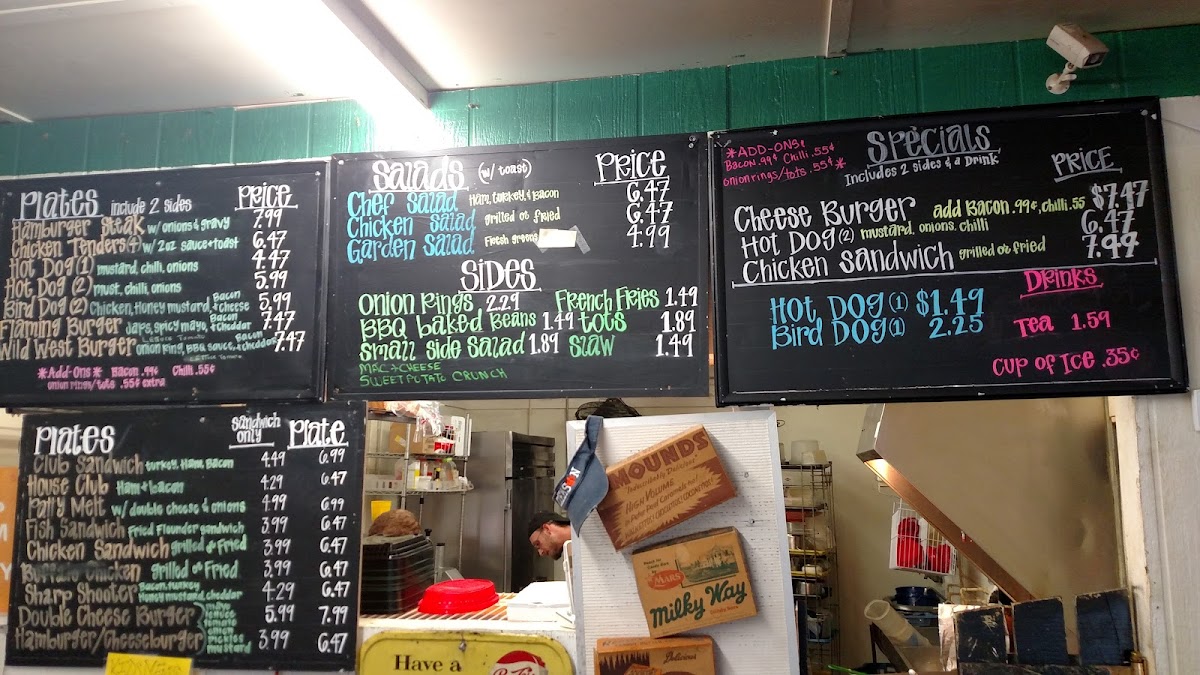 Plates include 2 sides Price
Hamburger Steak w/ onions & gravy 7.99
Chicken Tenders (4) w/ 2oz sauce + toast 6.47
Hot Dog (1) mustard, chilli, onions 4.47
Hot Dog (2) must, chilli, onions 5.99
Bird Dog (2) Chicken, Honey mustard, Bacon + cheese 5.99
Flaming Burger Japs, spicy mayo, Bacon + cheddar 7.47
Lettuce Tomato
Wild West Burger onion ring, BBQ sauce, Bacon + cheddar 7.47
Lettuce Tomato
*Add-Ons* Bacon .99¢ Chilli .55¢
onion rings/tots .55¢ extra
Salads (w/ toast) Price
Chef Salad Ham, turkey, & Bacon 6.47
Chicken Salad grilled or fried 6.47
Garden Salad Fresh greens 4.99
Sides
Onion Rings 2.29 French Fries 1.49
BBQ Baked Beans 1.49 tots 1.89
Small Side Salad 1.89 Slaw 1.49
Mac + Cheese
Sweet Potato Crunch
*ADD-ONS*
Bacon .99¢ Chilli .55¢
onion rings/tots .55¢*
Specials
Includes 2 sides & a Drink
Price
Cheese Burger add Bacon .99¢, chilli .55 $7.47
Hot Dog (2) mustard, onions, chilli 6.47
Chicken Sandwich grilled or fried 7.49
Hot Dog (1) $1.49
Bird Dog (1) 2.25
Drinks
Tea 1.59
Cup of Ice .35¢
Plates Sandwich only Plate
Club Sandwich turkey, Ham, Bacon 4.49 6.99
House Club Ham + bacon 4.29 6.47
Patty Melt w/ double cheese & onions 4.99 6.99
Fish Sandwich Fried Flounder sandwich 3.99 6.47
Chicken Sandwich grilled or Fried 3.99 6.47
Buffalo Chicken grilled or Fried 3.99 6.47
Sharp Shooter Bacon, turkey Honey mustard, cheddar 4.29 6.47
Double Cheese Burger 5.99 7.99
Hamburger/Cheeseburger 3.99 6.47
mayo
lettuce
tomato
onion
pickles
mustard
MOUNDS
Individually Delicious
HIGH VOLUME
MARS
Milky Way
Delicious
Have a